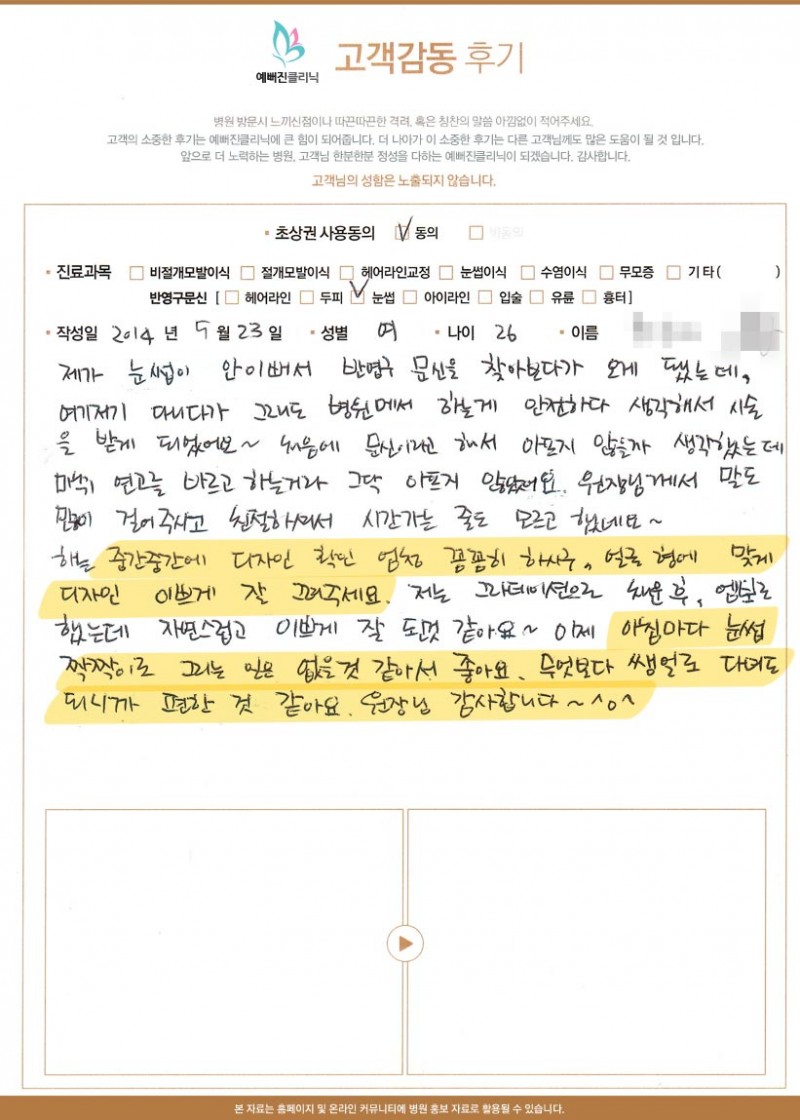 예뻐진클리닉
고객감동 후기
병원 방문시 느끼신점이나 따끈따끈한 격려, 혹은 칭찬의 말씀 아낌없이 적어주세요.
고객의 소중한 후기는 예뻐진클리닉에 큰 힘이 되어줍니다. 더 나아가 이 소중한 후기는 다른 고객님께도 많은 도움이 될 것 입니다.
앞으로 더 노력하는 병원, 고객님 한분한분 정성을 다하는 예뻐진클리닉이 되겠습니다. 감사합니다.
고객님의 성함은 노출되지 않습니다.
• 초상권 사용동의 ☑ 동의 □ 비동의
• 진료과목 □ 비절개모발이식 □ 절개모발이식 □ 헤어라인교정 □ 눈썹이식 □ 수염이식 □ 무모증 □ 기타( )
반영구문신 [ □ 헤어라인 □ 두피 ☑ 눈썹 □ 아이라인 □ 입술 □ 유륜 □ 흉터 ]
• 작성일 2014 년 5 월 23 일 • 성별 여 • 나이 26 • 이름
제가 눈썹이 안이뻐서 반영구 문신을 찾아보다가 오게 됐는데,
여기저기 다니다가 그래도 병원에서 하는게 안전하다 생각해서 시술
을 받게 되었어요~ 처음에 문신이라고 해서 아프지 않을까 생각했는데
마취 연고를 바르고 하는거라 그닥 아프지 않았어요. 원장님께서 말도
많이 걸어주시고 친절하셔서 시간가는 줄도 모르고 했네요~
하는 중간중간에 디자인 확인 엄청 꼼꼼히 하시구, 얼굴형에 맞게
디자인 이쁘게 잘 그려주세요. 저는 그라데이션으로 채운 후, 엠보로
했는데 자연스럽고 이쁘게 잘 된것 같아요~ 이제 아침마다 눈썹
짝짝이로 그리는 일은 없을것 같아서 좋아요. 무엇보다 쌩얼로 다녀도
되니까 편한 것 같아요. 원장님 감사합니다~^o^
본 자료는 홈페이지 및 온라인 커뮤니티에 병원 홍보 자료로 활용될 수 있습니다.